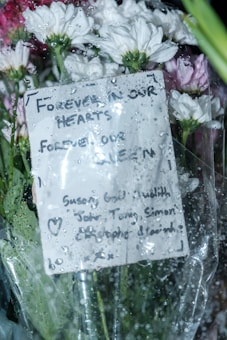 FOREVER IN OUR
HEARTS
FOREVER OUR
QUEEN
Susan, Gail, Judith
John, Tony, Simon
x x x